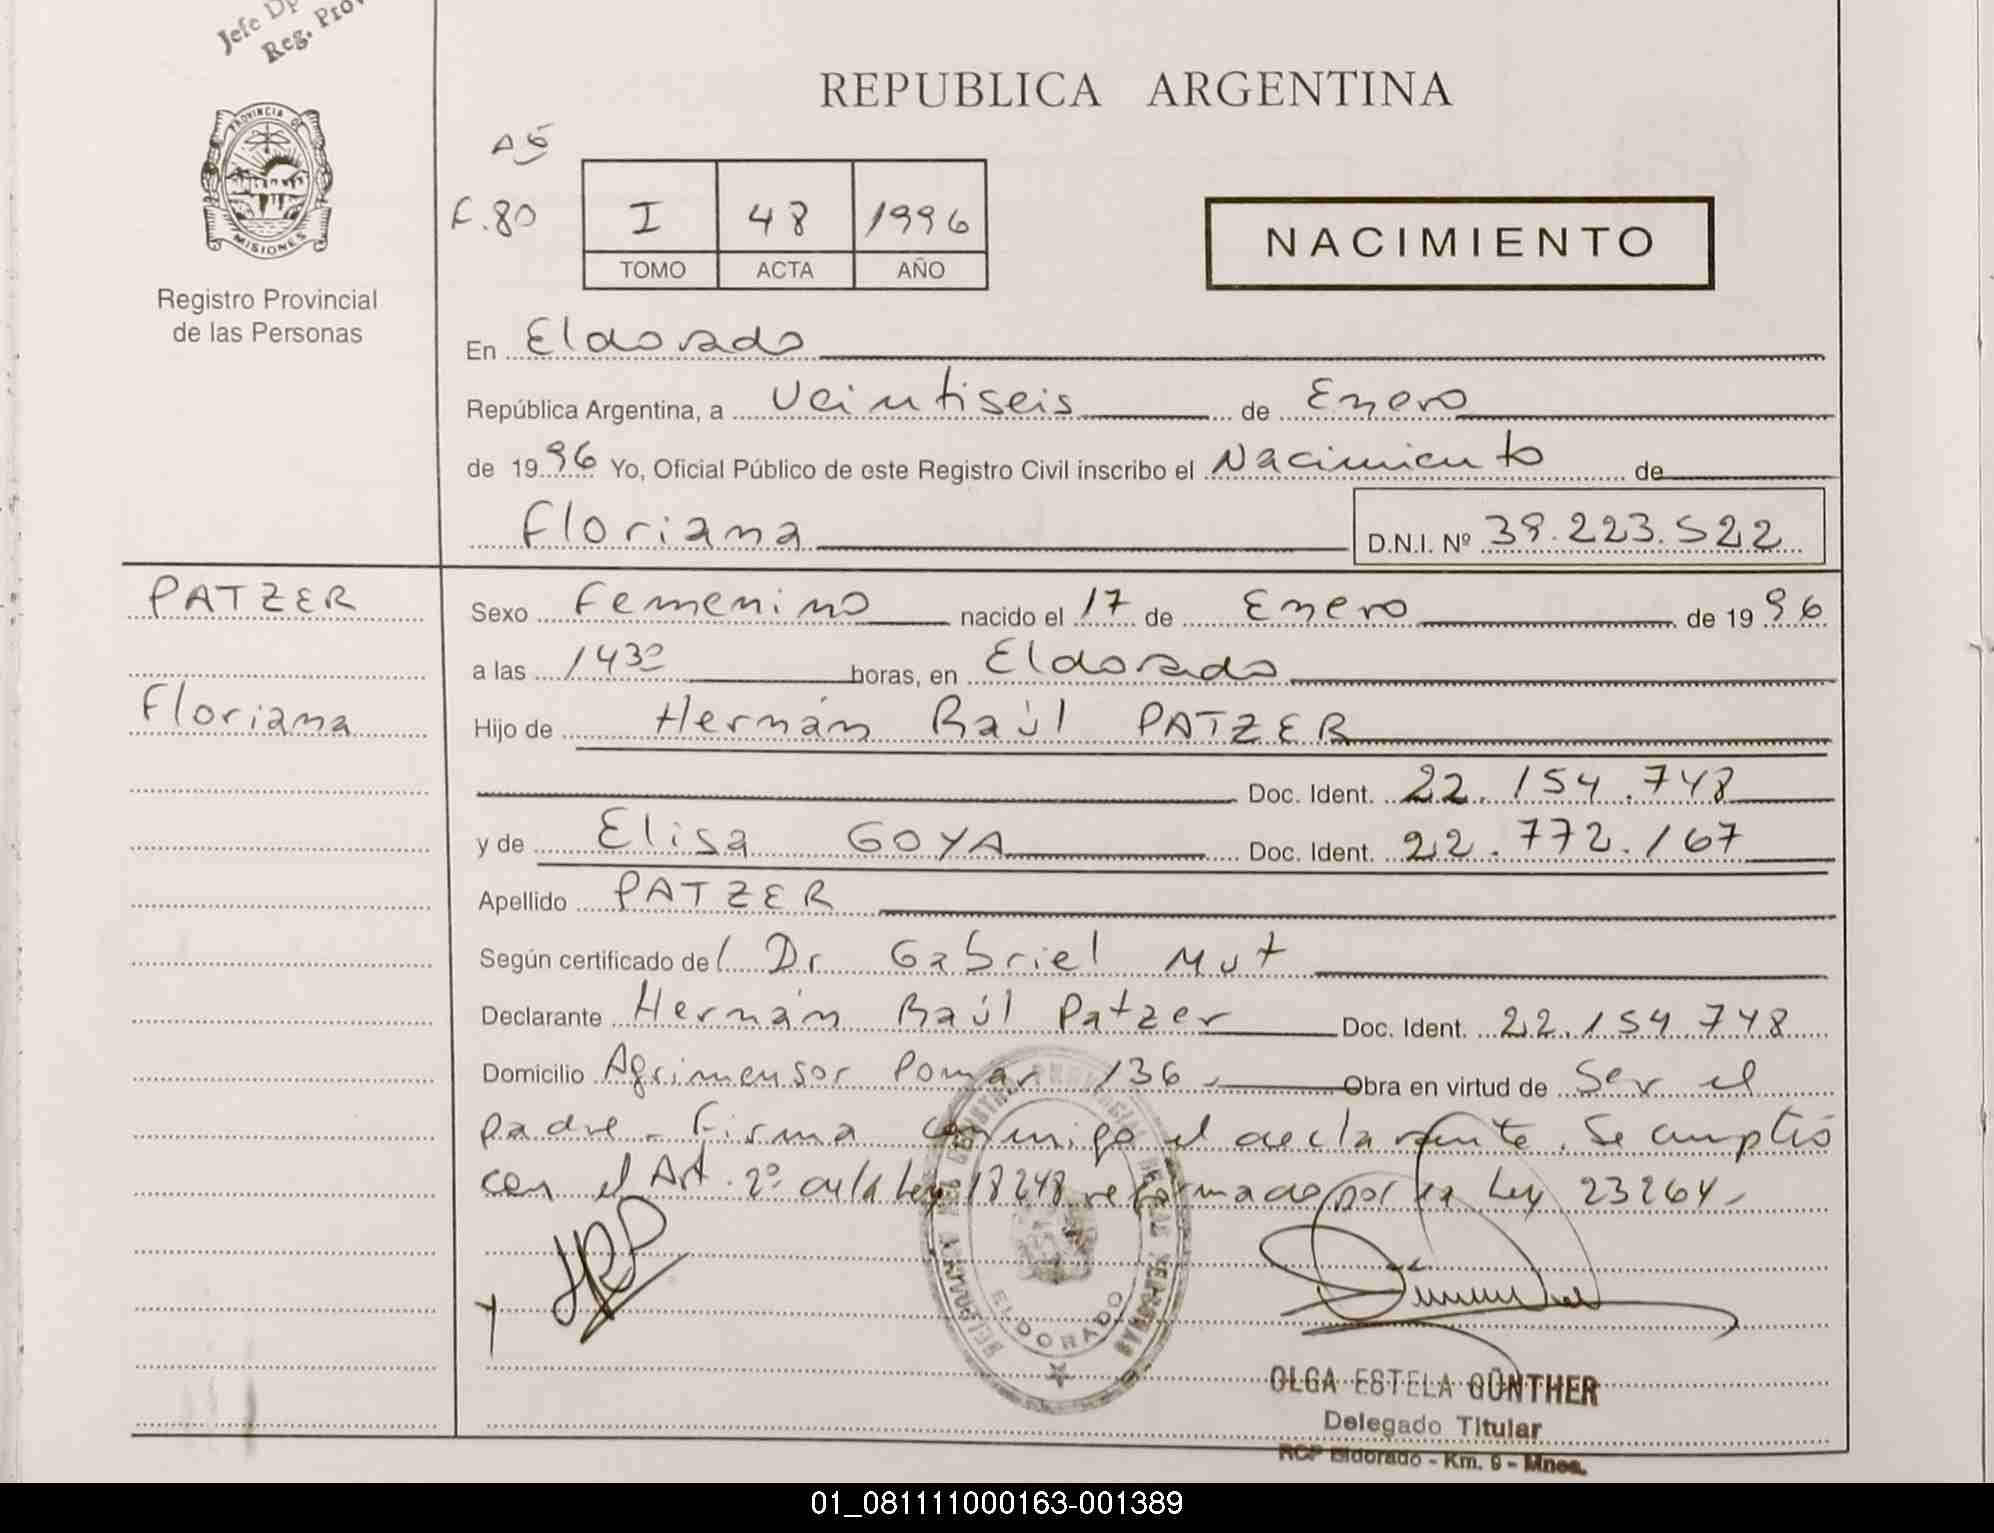 Jefe Dp
Reg. Pro
REPUBLICA ARGENTINA
PROVINCIA DE
MISIONES
Registro Provincial
de las Personas
F.80
I 48 1996
TOMO ACTA AÑO
NACIMIENTO
En Eldorado
República Argentina, a Veintiseis de Enero
de 1996 Yo, Oficial Público de este Registro Civil inscribo el Nacimiento de
Floriana D.N.I. Nº 39.223.522
PATZER
Floriana
Sexo Femenino nacido el 17 de Enero de 1996
a las 1430 horas, en Eldorado
Hijo de Hernán Raúl PATZER
Doc. Ident. 22.154.748
y de Elisa GOYA Doc. Ident. 22.772.167
Apellido PATZER
Según certificado de( Dr Gabriel Mut
Declarante Hernán Raúl Patzer Doc. Ident. 22.154.748
Domicilio Agrimensor Pomar 136 Obra en virtud de Ser el
padre - Firma conmigo el declarante. Se cumplió
con el Art. 2º de la Ley 18248 reformado por la Ley 23264
ELDORADO
OLGA ESTELA GÜNTHER
Delegado Titular
RCP Eldorado - Km. 9 - Mnes.
01_081111000163-001389